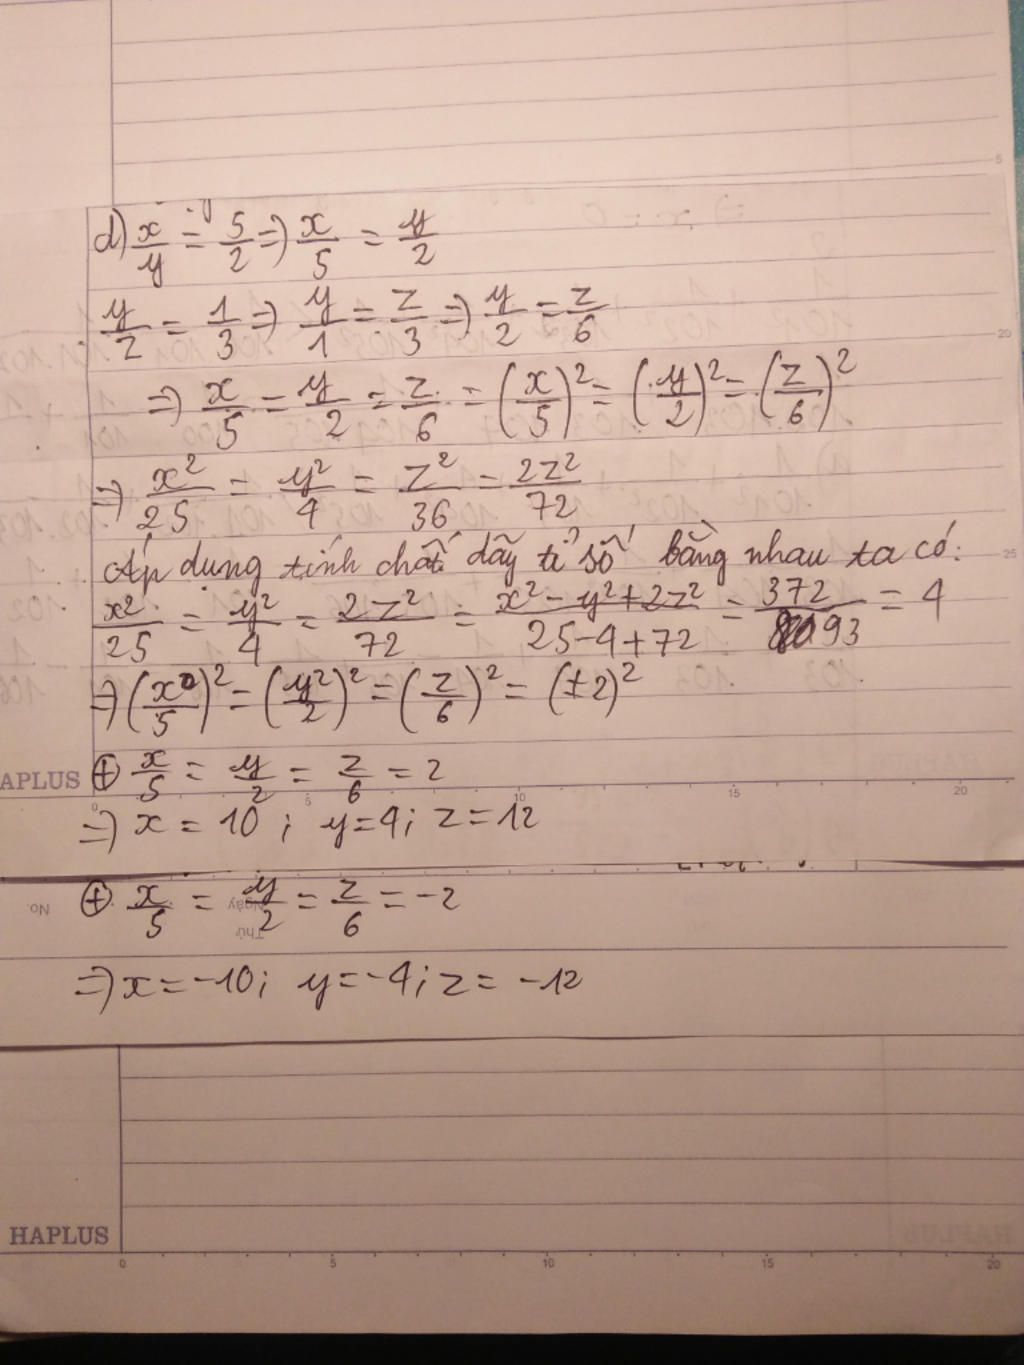 5
d) x/y = 5/2 => x/5 = y/2
y/z = 1/3 => y/1 = z/3 => y/2 = z/6
20
=> x/5 = y/2 = z/6 = (x/5)² = (y/2)² = (z/6)²
=> x²/25 = y²/4 = z²/36 = 2z²/72
Áp dụng tính chất dãy tỉ số bằng nhau ta có:
25
x²/25 = y²/4 = 2z²/72 = x² - y² + 2z²/25 - 4 + 72 = 372/93 = 4
=> (x/5)² = (y²/2)² = (z/6)² = (±2)²
APLUS
⊕ x/5 = y/2 = z/6 = 2
0 5 10 15 20
=> x = 10 ; y = 4 ; z = 12
No.
Ngày
Thứ
⊕ x/5 = y/2 = z/6 = -2
=> x = -10 ; y = -4 ; z = -12
HAPLUS
0 5 10 15 20